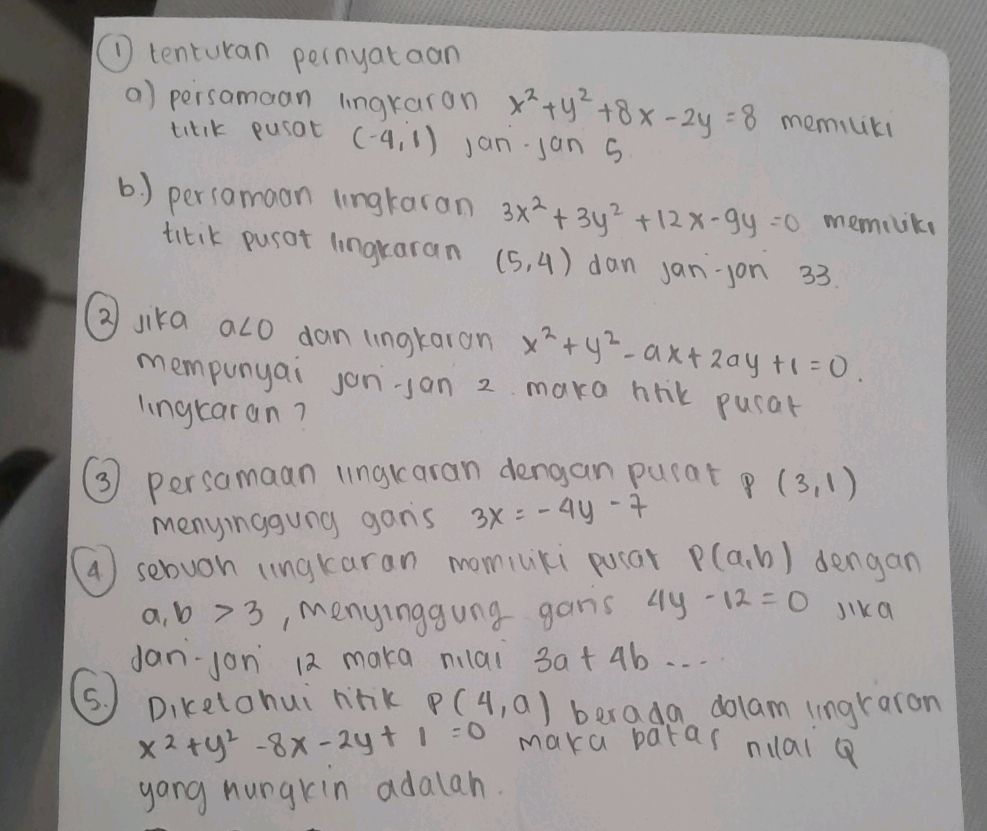 ① tentukan pernyataan
a) persamaan lingkaran x²+y²+8x-2y=8 memiliki
titik pusat (-4,1) jari-jari 5
b.) persamaan lingkaran 3x²+3y²+12x-9y=0 memiliki
titik pusat lingkaran (5,4) dan jari-jari 33.
② jika a<0 dan lingkaran x²+y²-ax+2ay+1=0.
mempunyai jari-jari 2 maka titik pusat
lingkaran?
③ persamaan lingkaran dengan pusat P (3,1)
menyinggung garis 3x=-4y-7
④ sebuah lingkaran memiliki pusat P(a,b) dengan
a,b >3, menyinggung garis 4y-12=0 jika
Jari-jari 12 maka nilai 3a+4b ...
⑤. Diketahui titik P(4,a) berada dalam lingkaran
x²+y²-8x-2y+1=0 maka batas nilai Q
yang mungkin adalah.